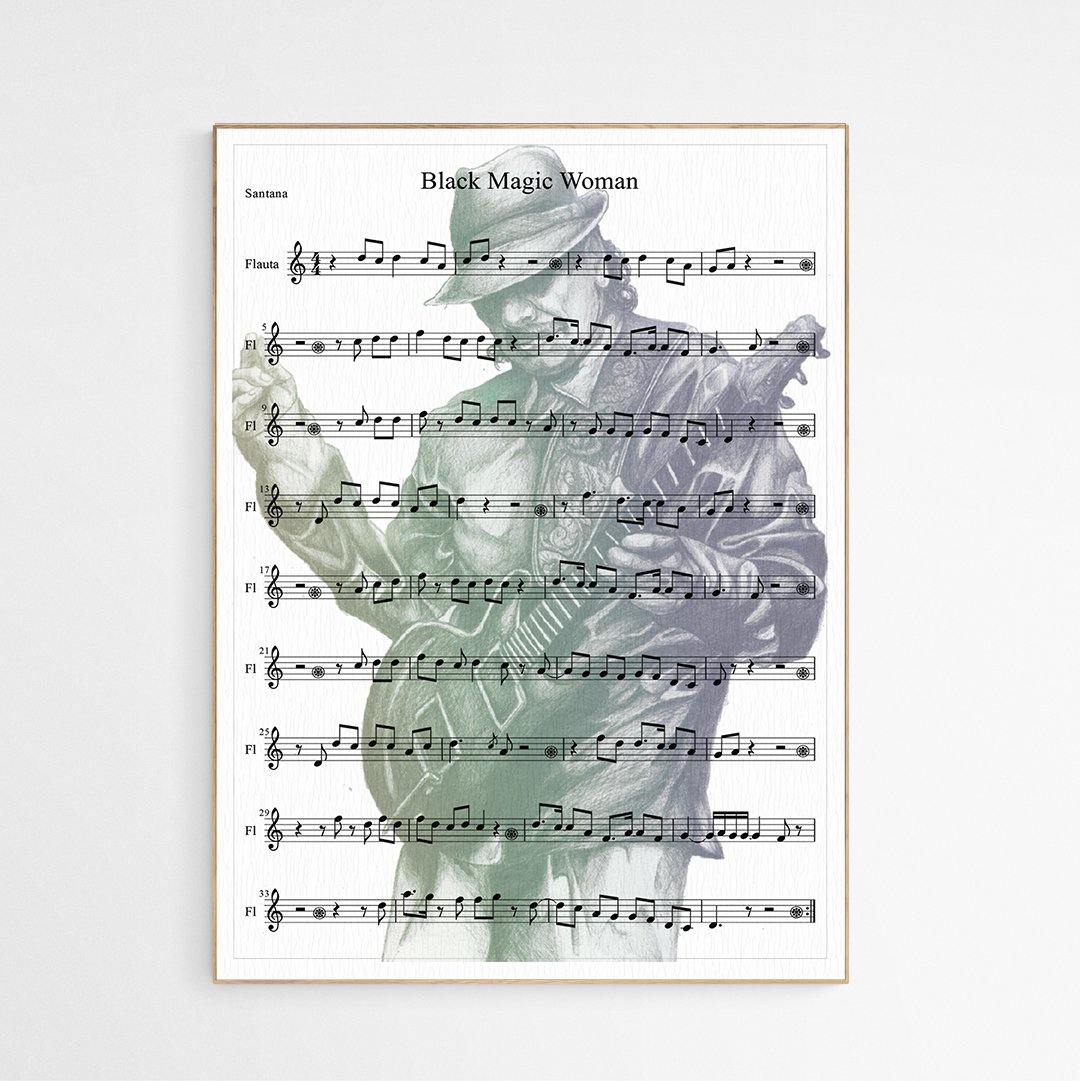 Black Magic Woman
Santana
Flauta 4 4
5
Fl
9
Fl
13
Fl
17
Fl
21
Fl
25
Fl
29
Fl
33
Fl